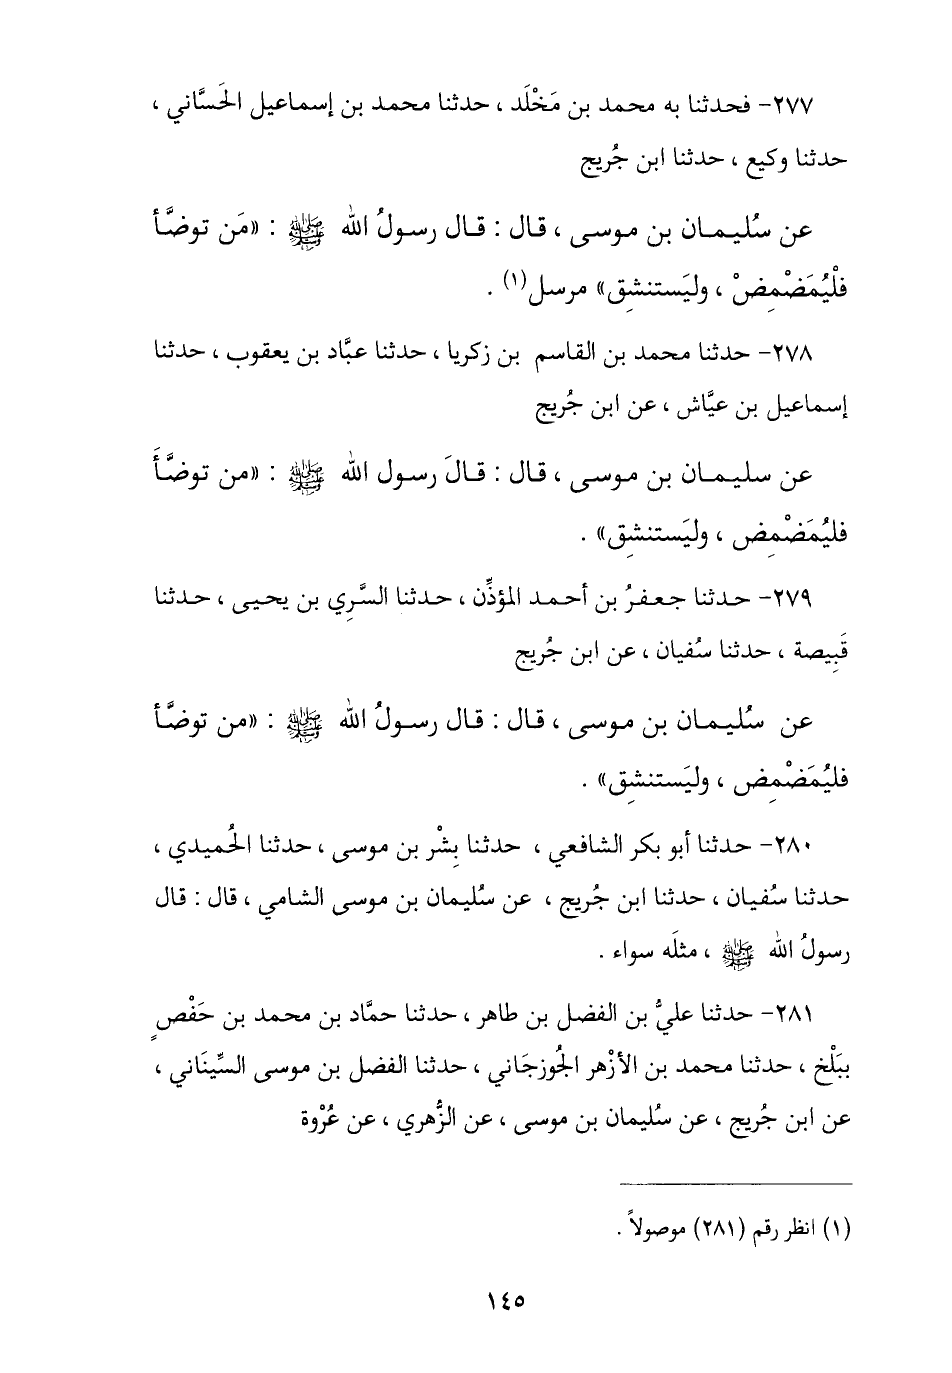 ٢٧٧- فحدثنا به محمد بن مَخْلَد ، حدثنا محمد بن إسماعيل الحَسَّاني ،
حدثنا وكيع ، حدثنا ابن جُريج
عن سُليمان بن موسى ، قال : قال رسولُ الله ﷺ : «مَن توضَّأ
فلْيُمَضْمِضْ ، وليَستنشِق» مرسل(١) .
٢٧٨- حدثنا محمد بن القاسم بن زكريا ، حدثنا عبَّاد بن يعقوب ، حدثنا
إسماعيل بن عيَّاش ، عن ابن جُريج
عن سليمان بن موسى ، قال : قالَ رسول الله ﷺ : «من توضَّأَ
فليُمَضْمِض ، وليَستنشِق» .
٢٧٩- حدثنا جعفرُ بن أحمد المؤذِّن ، حدثنا السَّرِي بن يحيى ، حدثنا
قَبِيصة ، حدثنا سُفيان ، عن ابن جُريج
عن سُليمان بن موسى ، قال : قال رسولُ الله ﷺ : «من توضَّأ
فليُمَضْمِض ، وليَستنشِق» .
٢٨٠- حدثنا أبو بكر الشافعي ، حدثنا بِشْر بن موسى ، حدثنا الحُميدي ،
حدثنا سُفيان ، حدثنا ابن جُريج ، عن سُليمان بن موسى الشامي ، قال : قال
رسولُ الله ﷺ ، مثلَه سواء .
٢٨١- حدثنا عليُّ بن الفضل بن طاهر ، حدثنا حمَّاد بن محمد بن حَفْصٍ
ببَلْخ ، حدثنا محمد بن الأزْهر الجُوزجَاني ، حدثنا الفضل بن موسى السِّينَاني ،
عن ابن جُريج ، عن سُليمان بن موسى ، عن الزُّهري ، عن عُرْوة
(١) انظر رقم (٢٨١) موصولاً .
١٤٥